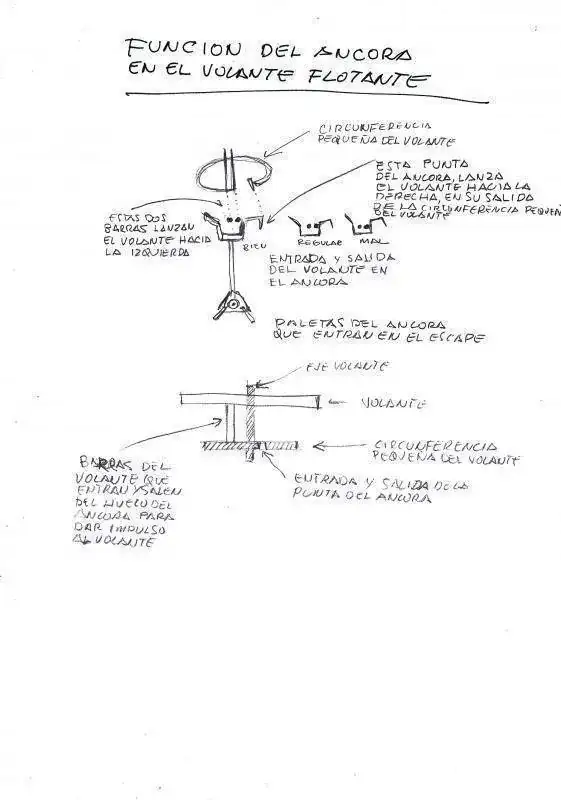 FUNCION DEL ANCORA
EN EL VOLANTE FLOTANTE
CIRCUNFERENCIA
PEQUEÑA DEL VOLANTE
ESTA PUNTA
DEL ANCORA, LANZA
EL VOLANTE HACIA LA
DERECHA, EN SU SALIDA
DE LA CIRCUNFERENCIA PEQUEÑ
DEL VOLANTE
ESTAS DOS
BARRAS LANZAN
EL VOLANTE HACIA
LA IZQUIERDA
BIEN
REGULAR
MAL
ENTRADA Y SALIDA
DEL VOLANTE EN
EL ANCORA
PALETAS DEL ANCORA
QUE ENTRAN EN EL ESCAPE
EJE VOLANTE
VOLANTE
CIRCUNFERENCIA
PEQUEÑA DEL VOLANTE
ENTRADA Y SALIDA DE LA
PUNTA DEL ANCORA
BARRAS DEL
VOLANTE QUE
ENTRAN Y SALEN
DEL HUECO DEL
ANCORA PARA
DAR IMPULSO
AL VOLANTE